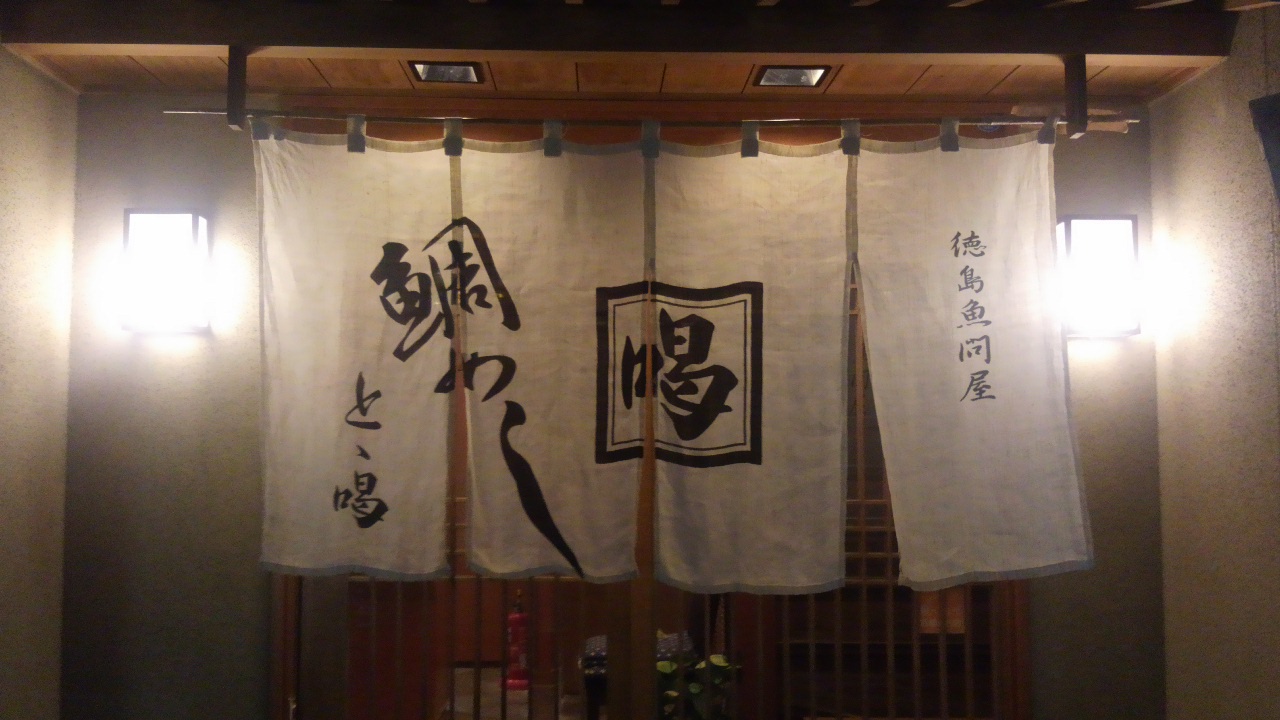 徳島魚問屋
喝
鯛めし
と、喝